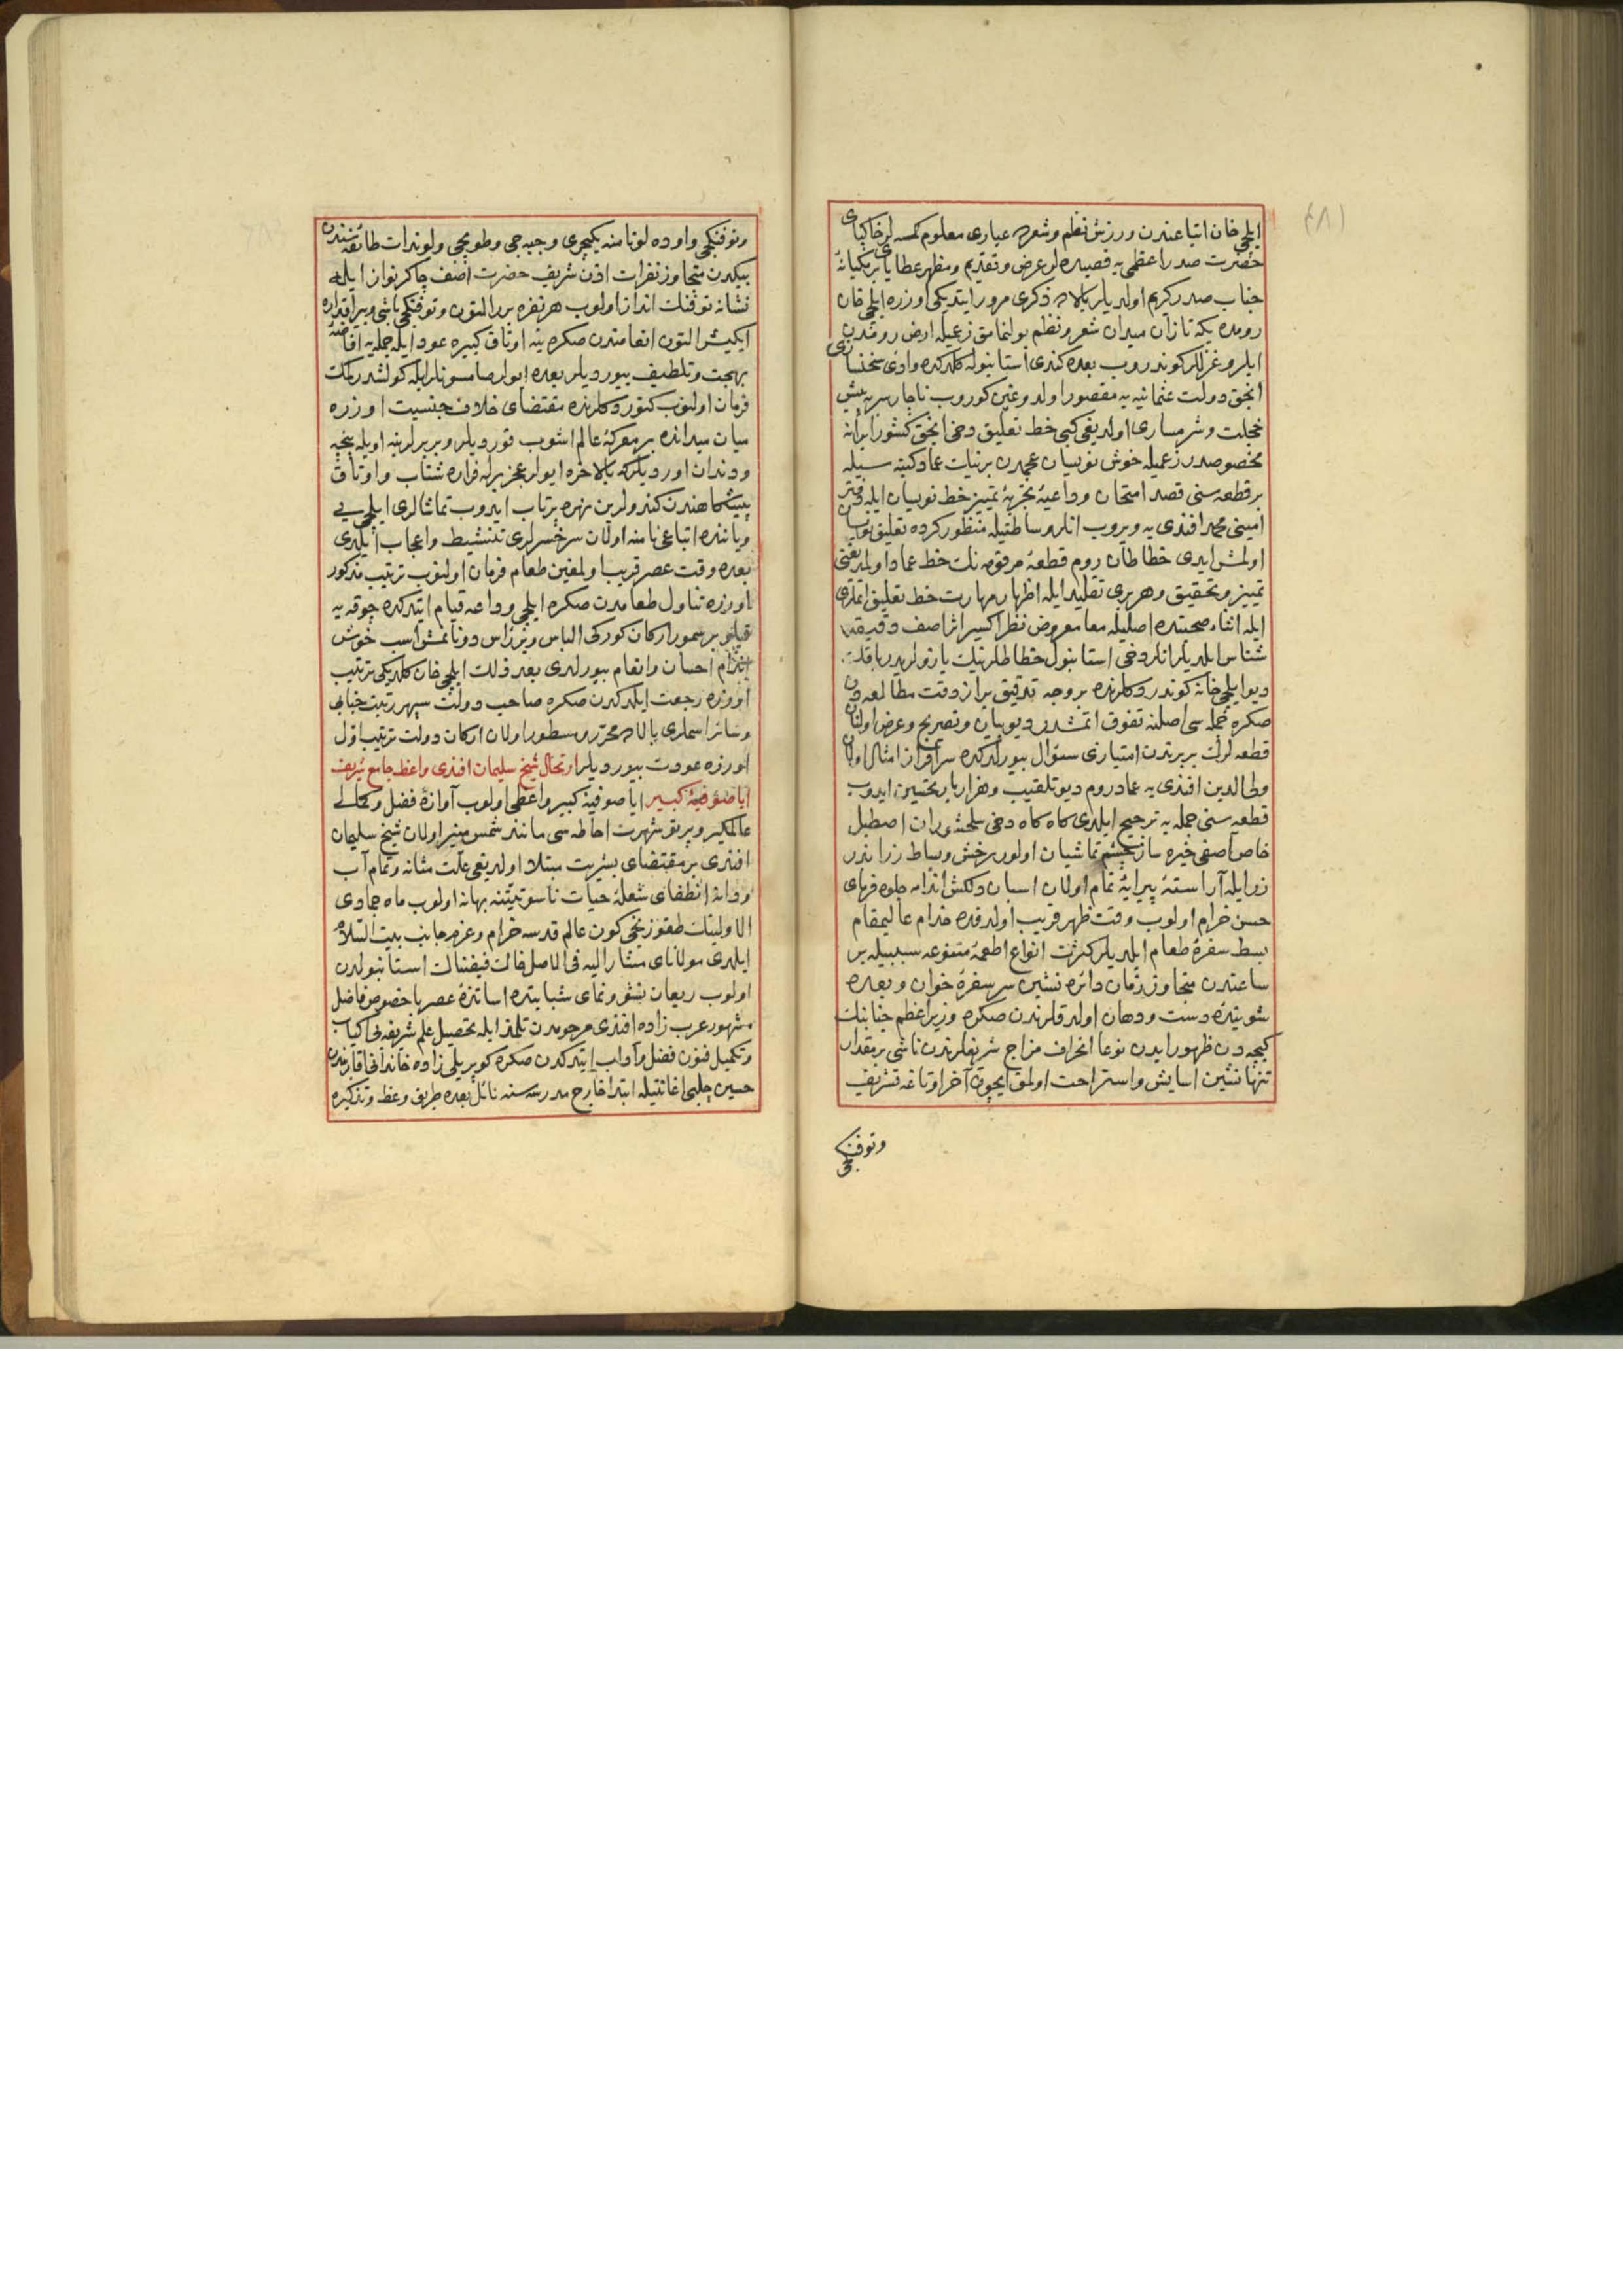 ایلچی خان اتباعندن ورزش نظم و شعرده عیاری معلوم کمسه لر خاکپای
حضرت صدر اعظمی یه قصیده لر عرض و تقدیم و مظهر عطایای برمکیانهٔ
جناب صدر کریم اولدیلر بالاده ذکری مرور ایتدیکی اوزره ایلچی خان
رومده یکه تازان میدان شعر و نظم بولنمامق زعمیله ارض رومدن
ایلرو غزللر کوندروب بعده کندی استانبوله کلدکده وادی سخنساری
انجق دولت عثمانیه یه مقصور اولدوغین کوروب ناچار سر به پیش
خجلت و شرمساری اولدیغی کبی خط تعلیق دخی انجق کشور ایرانه
مخصوصدر زعمیله خوش نویسان عجمدن برنیات عماد کتبه سیله
بر قطعه سنی قصد امتحان و داعیهٔ تجربهٔ تمییز خط نویسان ایله دفتر
امینی محمد افندی یه ویروب انلر وساطتیله منظور کرده تعلیق نویسان
اولمش ایدی خطاطان روم قطعهٔ مرقومه نك خط عماد اولمدیغنی
تمییز و تحقیق و هر بری تقلید ایله اظهار مهارت خط تعلیق اتدی
ایله اثناء صحبتده اصلیله معا معروض نظر اکسیر اثر اصف دقیقه
شناس ایلدیلر انلر دخی استانبول خطاطلرینك یازولریدر باقك
دیو ایلچی خانه کوندردکلرنده بر وجه تدقیق براز دقت مطالعه دن
صکره جمله سی اصلنه تفوق اتمشدر دیو بیان و تصریح و عرض اولنان
قطعه لرك بربرندن امتیازی سئوال بیورلدکده سرافراز امثال اولان
ولی الدین افندی یه عماد روم دیو تلقیب و هزار بار تحسین ایدوب
قطعه سنی جمله یه ترجیح ایلدی کاه کاه دخی سلحشوران اصطبل
خاص آصفی خیره ساز چشم تماشیان اولور رخش و بساط رزاندر
زر ایله آراستهٔ پیرایهٔ تمام اولان اسبان دلکش اندامه جلوه فرمای
حسن خرام اولوب وقت ظهر قریب اولدقده خدام عالیمقام
بسط سفرهٔ طعام ایلدیلر کثرت انواع اطعمهٔ متنوعه سببیله بر
ساعتدن متجاوز زمان دائره نشین سر سفرهٔ خوان و بعده
شوینده دست و دهان اولدقلرندن صکره وزیر اعظم جنابنك
کیجه دن ظهور ایدن نوعا انحراف مزاج شریفلرندن ناشی بر مقدار
تنها نشین اسایش و استراحت اولمق ایچون آخر اوتاغه تشریف
وتوفنکجی
وتوفنکجی و اوده لونامنه یکیچری و جبه جی و طوپجی و لوندات طائفه سندن
بیکدن متجاوز نفرات اذن شریف حضرت اصف چاکر نواز ایله
نشانه توفنك انداز اولوب هر نفره برر التون و توفنکجی باشی و بیراقداره
ایکیشر التون انعامندن صکره ینه اوتاق کبیره عود ایله جمله یه افاضهٔ
بهجت و تلطیف بیوردیلر بعده ایولر صامسونلر ایله کولشدرلمك
فرمان اولنوب کتوردکلرنده مقتضای خلاف جنسیت اوزره
میان میدانده بر معرکهٔ عالم اشوب قوردیلر و بربرلرینه اویله پنجه
و دندان اوردیلرکه بالاخره ایولر عجز برله فراره شتاب و اوتاق
پیشکاهندن کندولرین نهره پرتاب ایدوب تماشالری ایلچی یی
و یاننده اتباعی نامنه اولان سرخسرلری تنشیط و اعجاب ایلدی
بعده وقت عصر قریب اولمغین طعام فرمان اولنوب ترتیب مذکور
اوزره تناول طعامدن صکره ایلچی وداعه قیام ایتدکده چوقه یه
قپلو بر سمور ارکان کورکی الباس و بر رأس دونانمش اسب خوش
اندام احسان و انعام بیورلدی بعد ذلك ایلچی خان کلدیکی ترتیب
اوزره رجعت ایلدکدن صکره صاحب دولت سپهر رتبت جنابی
و سائر اسملری بالاده محرر و مسطور اولان ارکان دولت ترتیب اول
اوزره عودت بیوردیلر ارتحال شیخ سلیمان افندی واعظ جامع شریف
ایاصوفیهٔ کبیر ایاصوفیهٔ کبیر واعظی اولوب آوازهٔ فضل و کمالی
عالمکیر و پرتو شهرت احاطه سی مانند شمس منیر اولان شیخ سلیمان
افندی بر مقتضای بشریت مبتلا اولدیغی علت مثانه و تمام آب
و دانهٔ انطفای شعلهٔ حیات ناسوتیتنه بهانه اولوب ماه جمادی
الاولینك طقوزنجی کون عالم قدسه خرام و عزم جانب بیت السلام
ایلدی مولانای مشار الیه فی الاصل خاك فیضناك استانبولدن
اولوب ریعان نشو و نمای شبابیتده اساتذهٔ عصر باخصوص فاضل
مشهور عرب زاده افندی مرحومدن تلمذ ایله تحصیل علم شریفه بی اکیاب
و تکمیل فنون فضل و آداب ایتدکدن صکره کوپریلی زاده خاندانی اقاربندن
حسین چلبی اعانتیله ابتدا خارج مدرسه سنه نائل بعده طریق وعظ و تذکیره